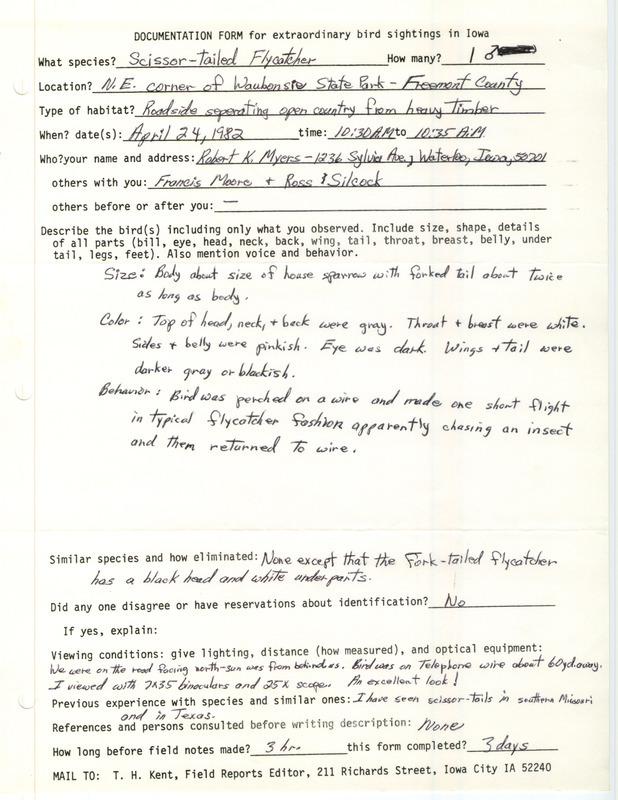 DOCUMENTATION FORM for extraordinary bird sightings in Iowa
What species? Scissor-tailed Flycatcher How many? 1 ♂
Location? N.E. corner of Waubonsie State Park - Freemont County
Type of habitat? Roadside seperating open country from heavy timber
When? date(s): April 24, 1982 time: 10:30 AM to 10:35 A.M
Who? your name and address: Robert K. Myers - 1236 Sylvia Ave, Waterloo, Iowa, 50701
others with you: Francis Moore + Ross Silcock
others before or after you: —
Describe the bird(s) including only what you observed. Include size, shape, details
of all parts (bill, eye, head, neck, back, wing, tail, throat, breast, belly, under
tail, legs, feet). Also mention voice and behavior.
Size: Body about size of house sparrow with forked tail about twice
as long as body.
Color: Top of head, neck, + back were gray. Throat + breast were white.
Sides + belly were pinkish. Eye was dark. Wings + tail were
darker gray or blackish.
Behavior: Bird was perched on a wire and made one short flight
in typical flycatcher fashion apparently chasing an insect
and them returned to wire.
Similar species and how eliminated: None except that the Fork-tailed flycatcher
has a black head and white underparts.
Did any one disagree or have reservations about identification? No
If yes, explain:
Viewing conditions: give lighting, distance (how measured), and optical equipment:
We were on the road facing north-sun was from behind us. Bird was on Telephone wire about 60yd. away.
I viewed with 7x35 binoculars and 25x scope. An excellent look!
Previous experience with species and similar ones: I have seen scissor-tails in southern Missouri
and in Texas.
References and persons consulted before writing description: None
How long before field notes made? 3 hr. this form completed? 3 days
MAIL TO: T. H. Kent, Field Reports Editor, 211 Richards Street, Iowa City IA 52240